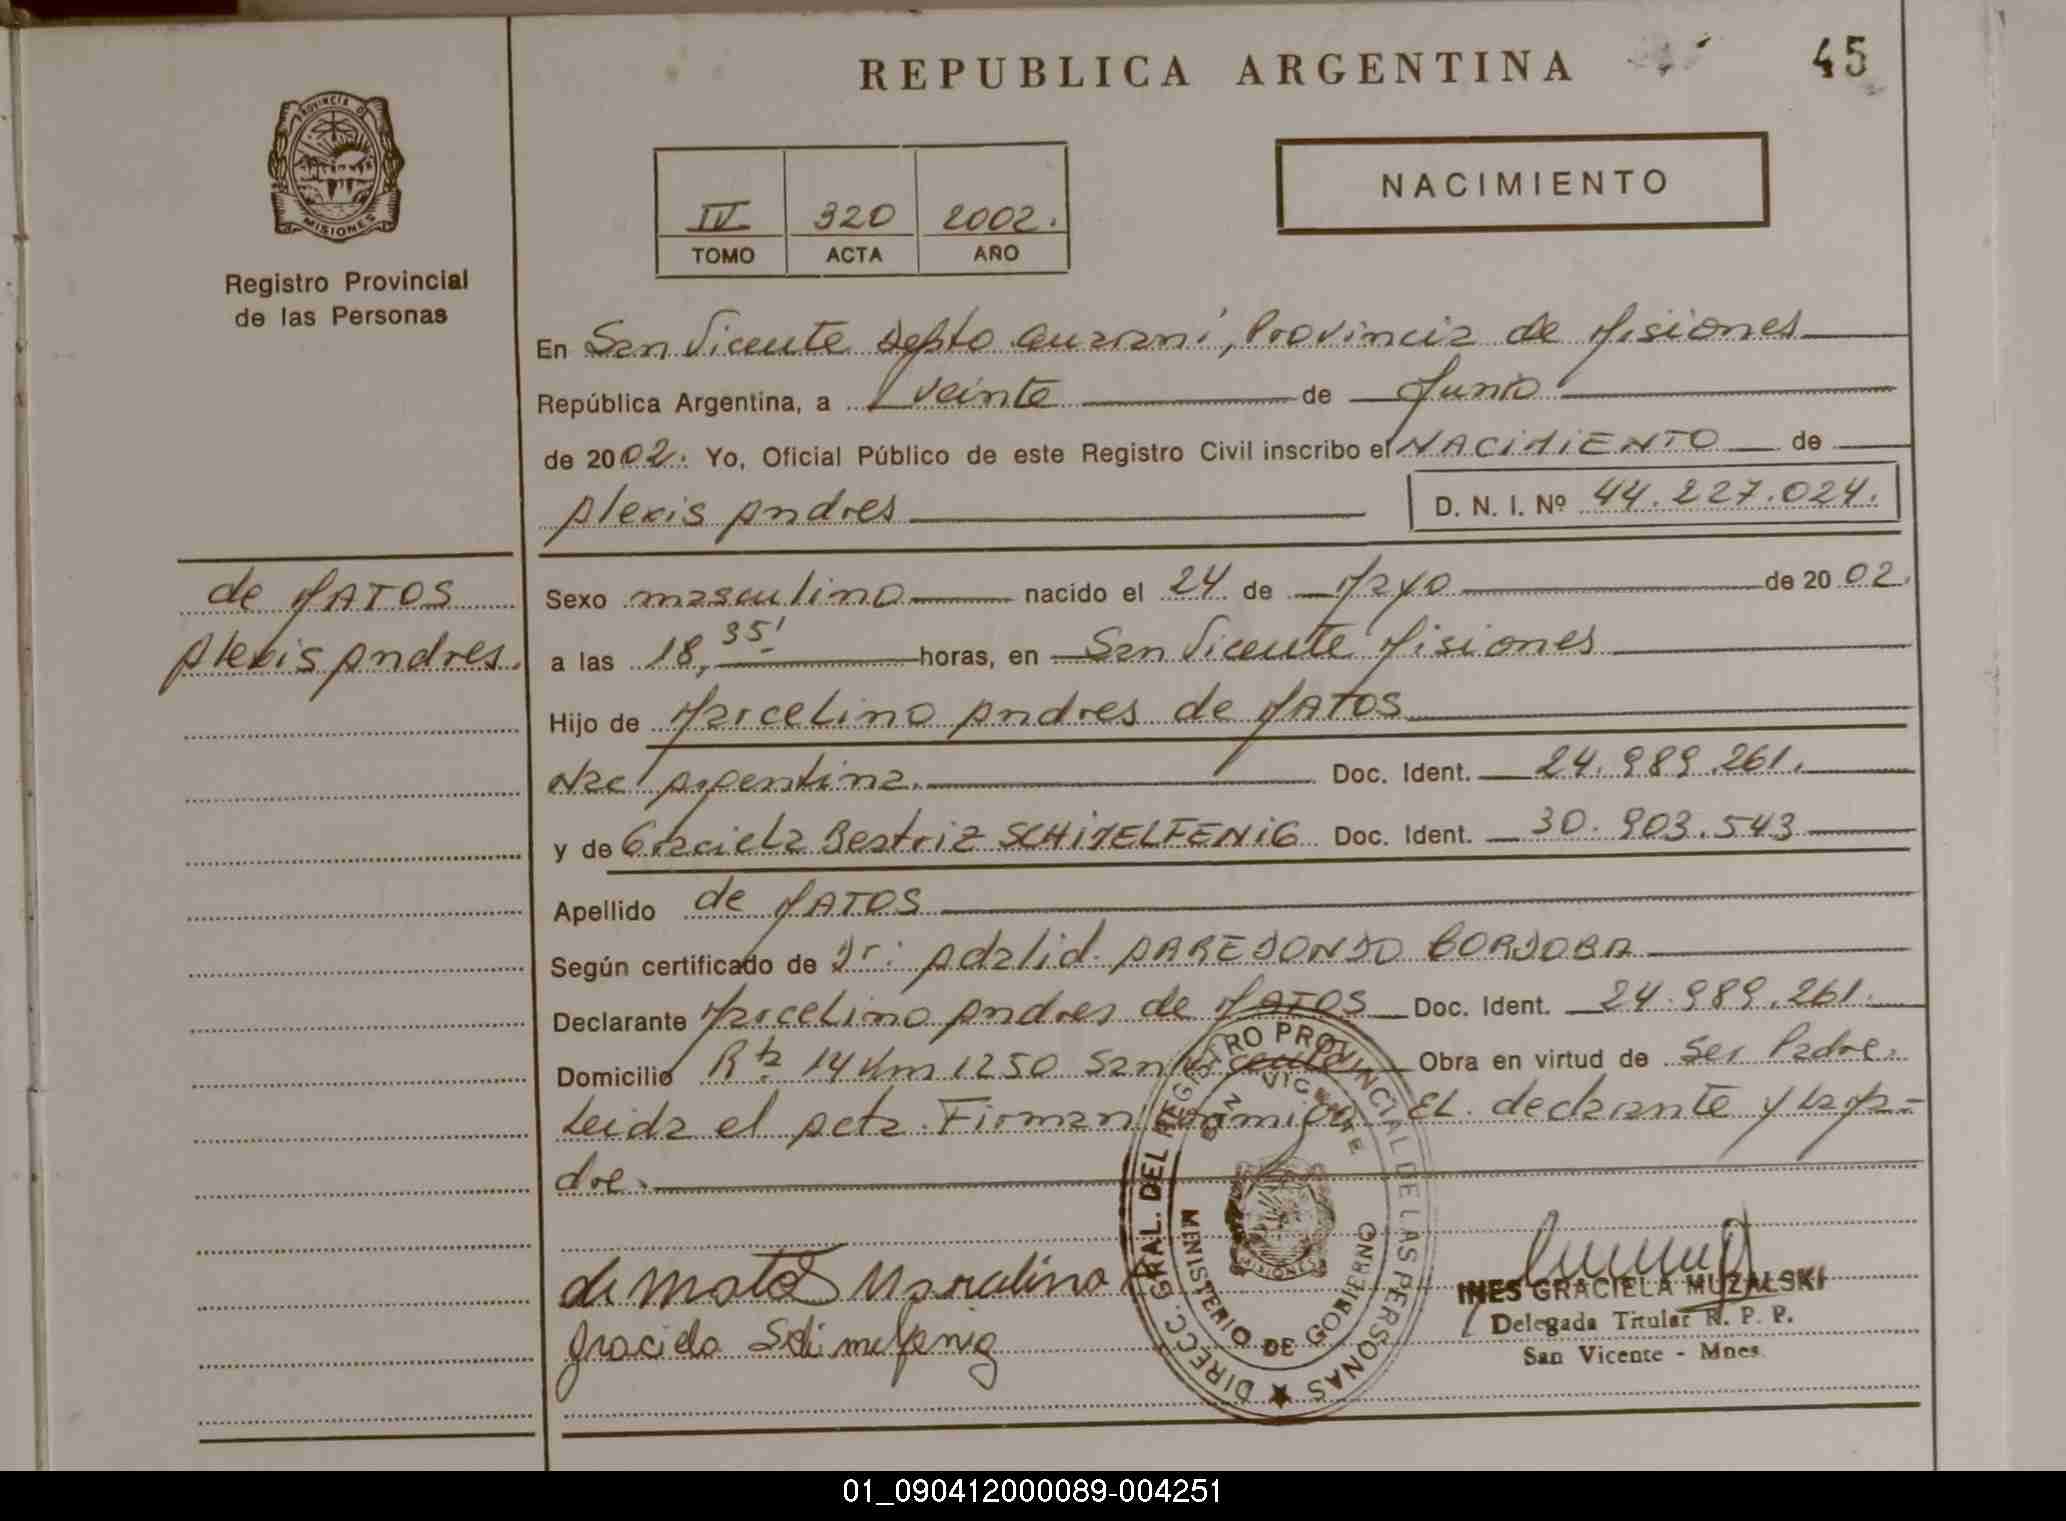 REPUBLICA ARGENTINA
45
PROVINCIA DE
MISIONES
Registro Provincial
de las Personas
IV 320 2002.
TOMO ACTA AÑO
NACIMIENTO
En San Vicente Depto Guaraní, Provincia de Misiones
República Argentina, a veinte de Junio
de 2002. Yo, Oficial Público de este Registro Civil inscribo el NACIMIENTO de
Alexis Andres
D. N. I. Nº 44.227.024.
de MATOS
Alexis Andres.
Sexo masculino nacido el 24 de Mayo de 2002.
a las 18,35' horas, en San Vicente Misiones
Hijo de Marcelino Andres de MATOS
Nac Argentina. Doc. Ident. 24.989.261.
y de Graciela Beatriz SCHIMELFENIG Doc. Ident. 30.903.543
Apellido de MATOS
Según certificado de Dr: Adalid. DAREDONDO CORDOBA
Declarante Marcelino Andres de MATOS Doc. Ident. 24.989.261.
Domicilio Rta 14 Km 1250 San Vicente Obra en virtud de Ser Padre.
Leida el Acta. Firman conmigo EL declarante y la Ma-
dre.
de Matos Marcelino A
Graciela Schimelfenig
DIRECC. GRAL. DEL REGISTRO PROVINCIAL DE LAS PERSONAS
SAN VICENTE
MINISTERIO DE GOBIERNO
MISIONES
INES GRACIELA MUZALSKI
Delegada Titular R. P. P.
San Vicente - Mnes
01_090412000089-004251